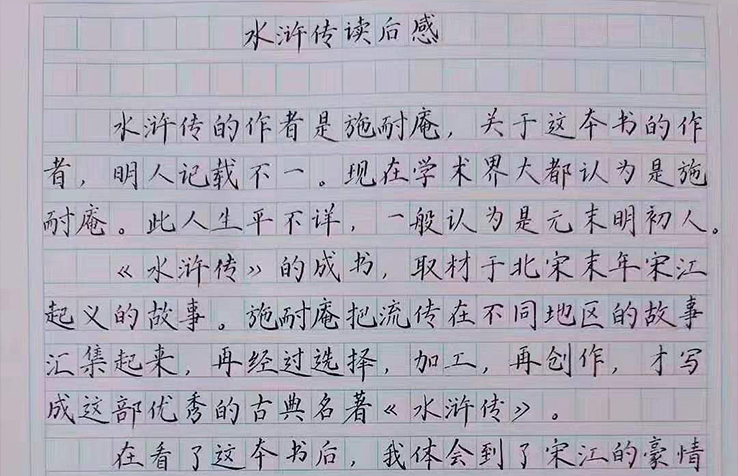 水浒传读后感
水浒传的作者是施耐庵，关于这本书的作
者，明人记载不一。现在学术界大都认为是施
耐庵。此人生平不详，一般认为是元末明初人。
《水浒传》的成书，取材于北宋末年宋江
起义的故事。施耐庵把流传在不同地区的故事
汇集起来，再经过选择，加工，再创作，才写
成这部优秀的古典名著《水浒传》。
在看了这本书后，我体会到了宋江的豪情